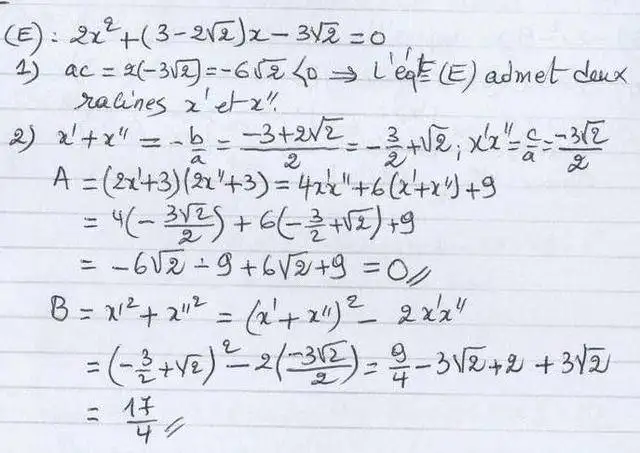 (E): 2x²+(3-2√2)x-3√2=0
1) ac = 2(-3√2)=-6√2 <0 ⇒ L'éqt° (E) admet deux
racines x' et x''.
2) x'+x'' = -b/a = (-3+2√2)/2 = -3/2+√2 ; x'x''=c/a=-3√2/2
A = (2x'+3)(2x''+3) = 4x'x''+6(x'+x'')+9
= 4(-3√2/2) + 6(-3/2+√2)+9
= -6√2 - 9 + 6√2+9 = 0//
B = x'²+x''² = (x'+x'')² - 2x'x''
= (-3/2+√2)² - 2(-3√2/2) = 9/4 - 3√2+2 + 3√2
= 17/4 //